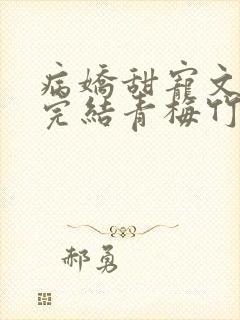 病嬌甜寵文
完結青梅竹
郝勇